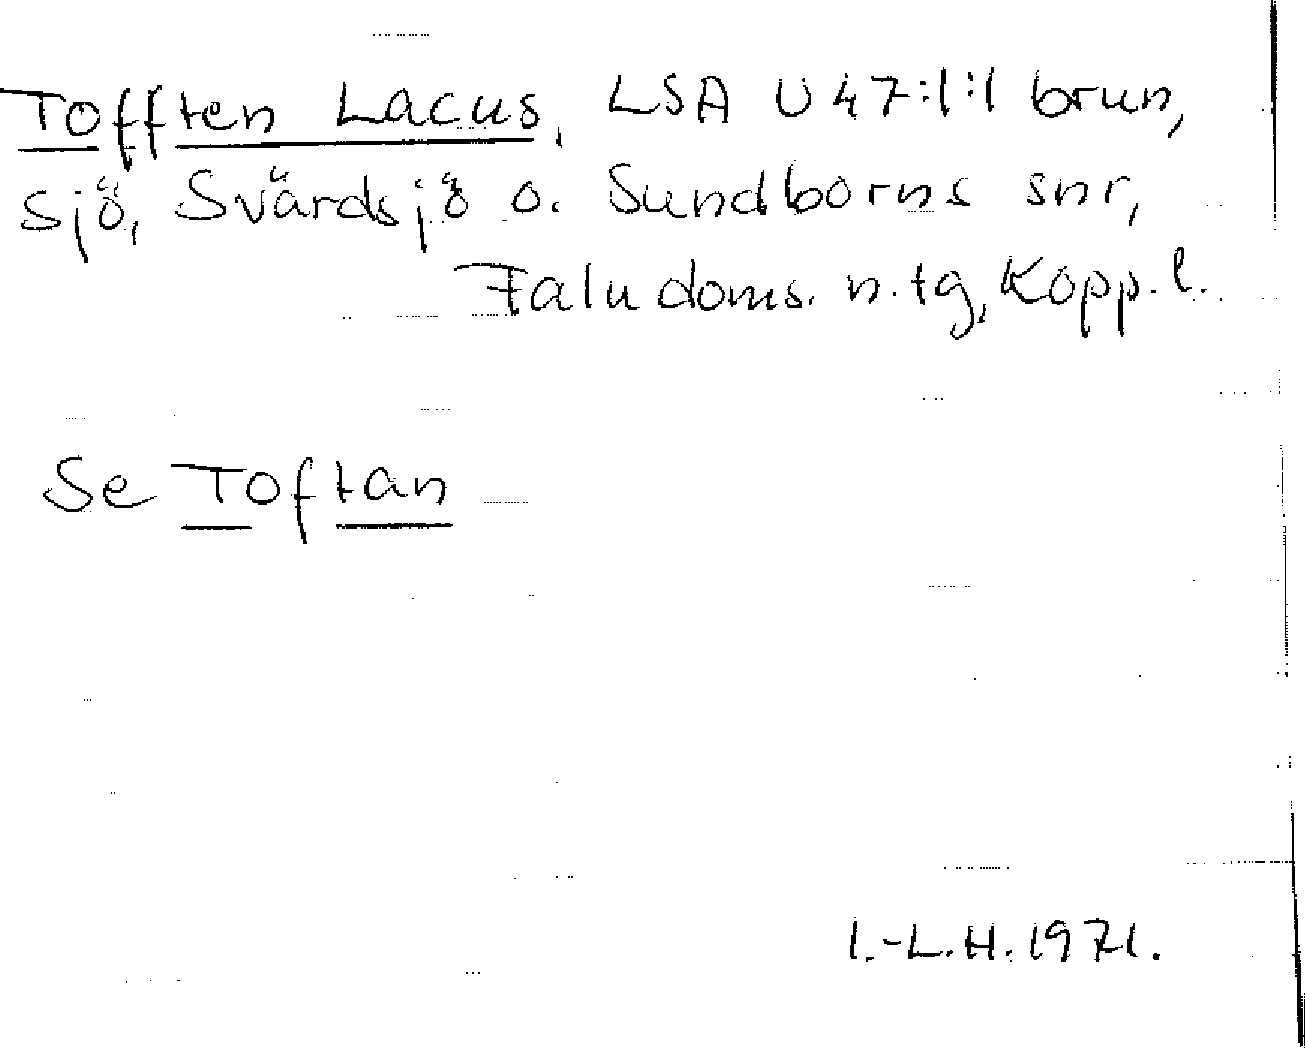 Tofften Lacus, LSA U47:1:1 brun,
sjö, Svärdsjö o. Sundborns snr,
Falu doms. n. tg, Kopp. l.
Se Toftan
I.-L.H. 1971.